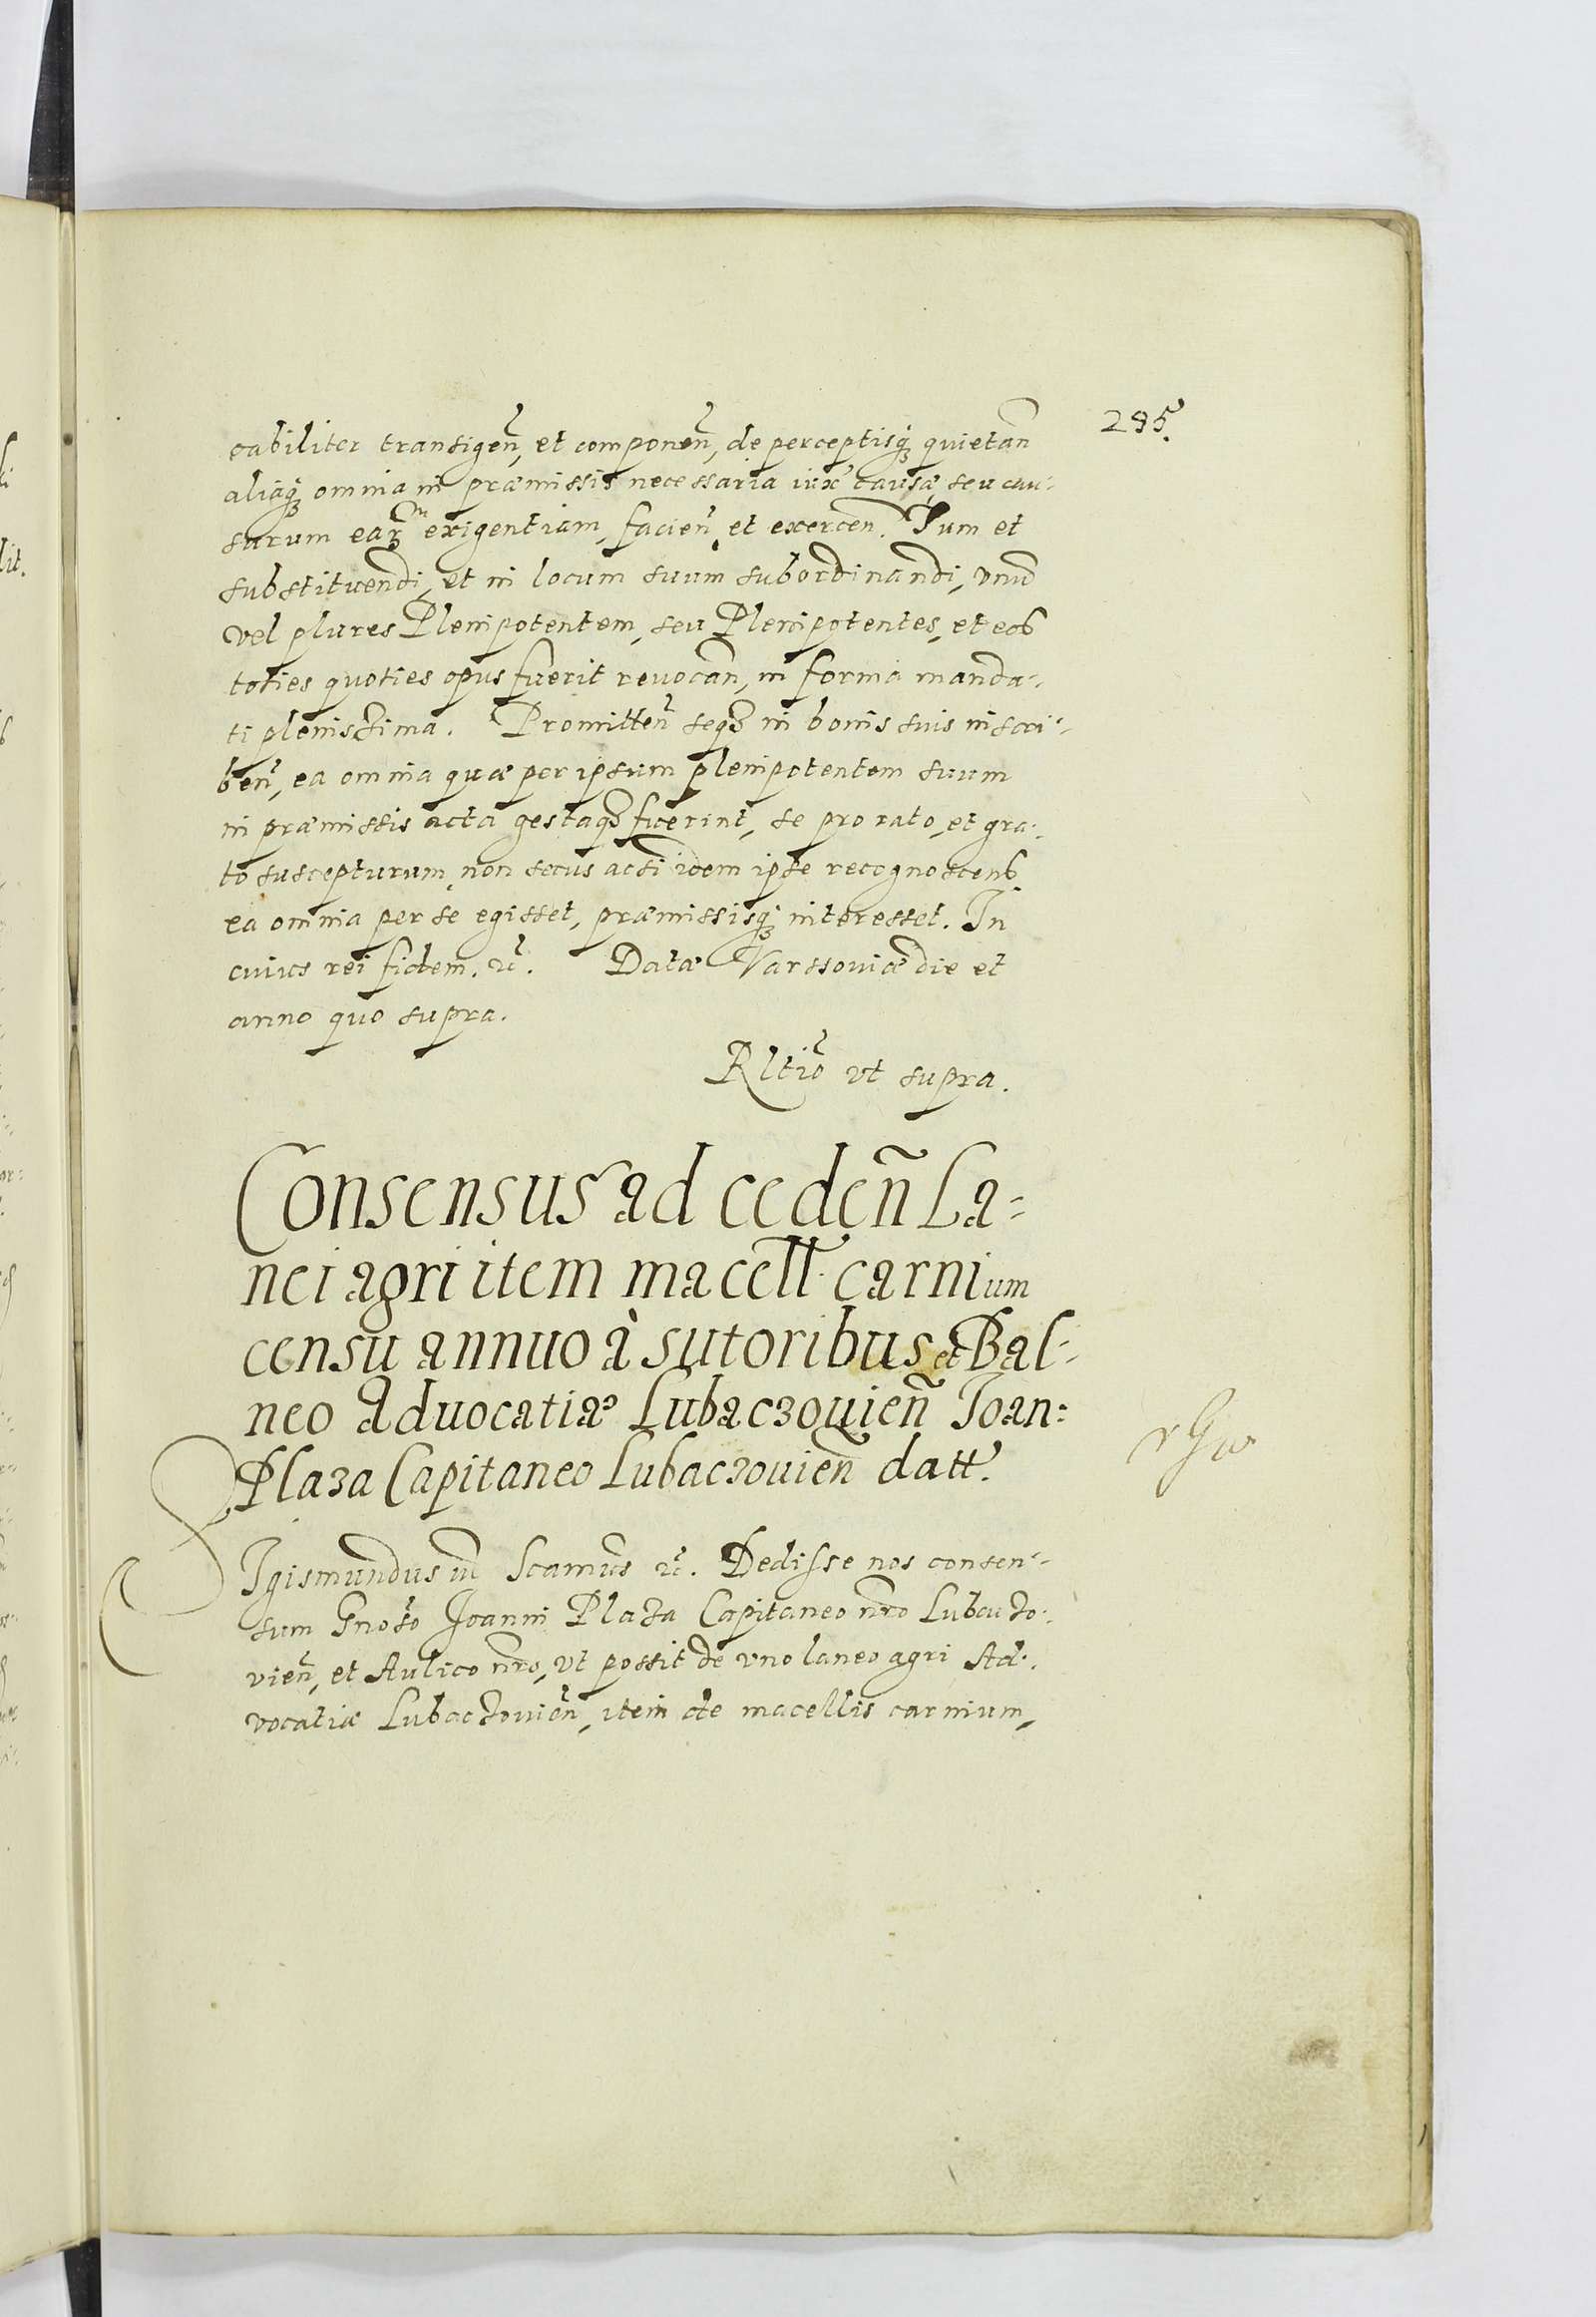 295.
cabiliter transigen̄, et componen̄, de perceptisq́ꝫ quietan̄
aliaq́ꝫ omnia in præmissis necessaria iux̄ causæ, seu cau-
sarum earꝫ exigentiam, facien̄ et exercen̄. Tum et
substituendi, et in locum suum subordinandi, vnū
vel plures Plenipotentem, seu Plenipotentes, et eos
toties quoties opus fuerit reuocan̄, in forma manda-
ti plenissima. Promitten̄ seqꝫ in bonis suis inscri-
ben̄, ea omnia quæ per ipsum plenipotentem suum
in præmissis acta gestaqꝫ fuerint, se pro rato, et gra-
to suscepturum, non secus acsi idem ipse recognoscens
ea omnia per se egisset, præmissisq́ꝫ interesset. In
cuius rei fidem. ꝛc̄. Datæ Varssouiæ die et
anno quo supra.
Rltio vt supra.
Consensus ad ceden̄ La-
nei agri item macell. carnium
censu annuo à sutoribus et Bal-
neo Aduocatiæ Lubaczouien̄ Ioan:
Plaza Capitaneo Lubaczouien̄ datt.
SIgismundus iii Scamus ꝛc̄. Dedisse nos consen-
sum Gnoso Joanni Plaza Capitaneo nr̄o Lubaczo-
vien̄, et Aulico nr̄o, vt possit de vno laneo agri Ad-
vocatiæ Lubaczouien̄, item de macellis carnium,